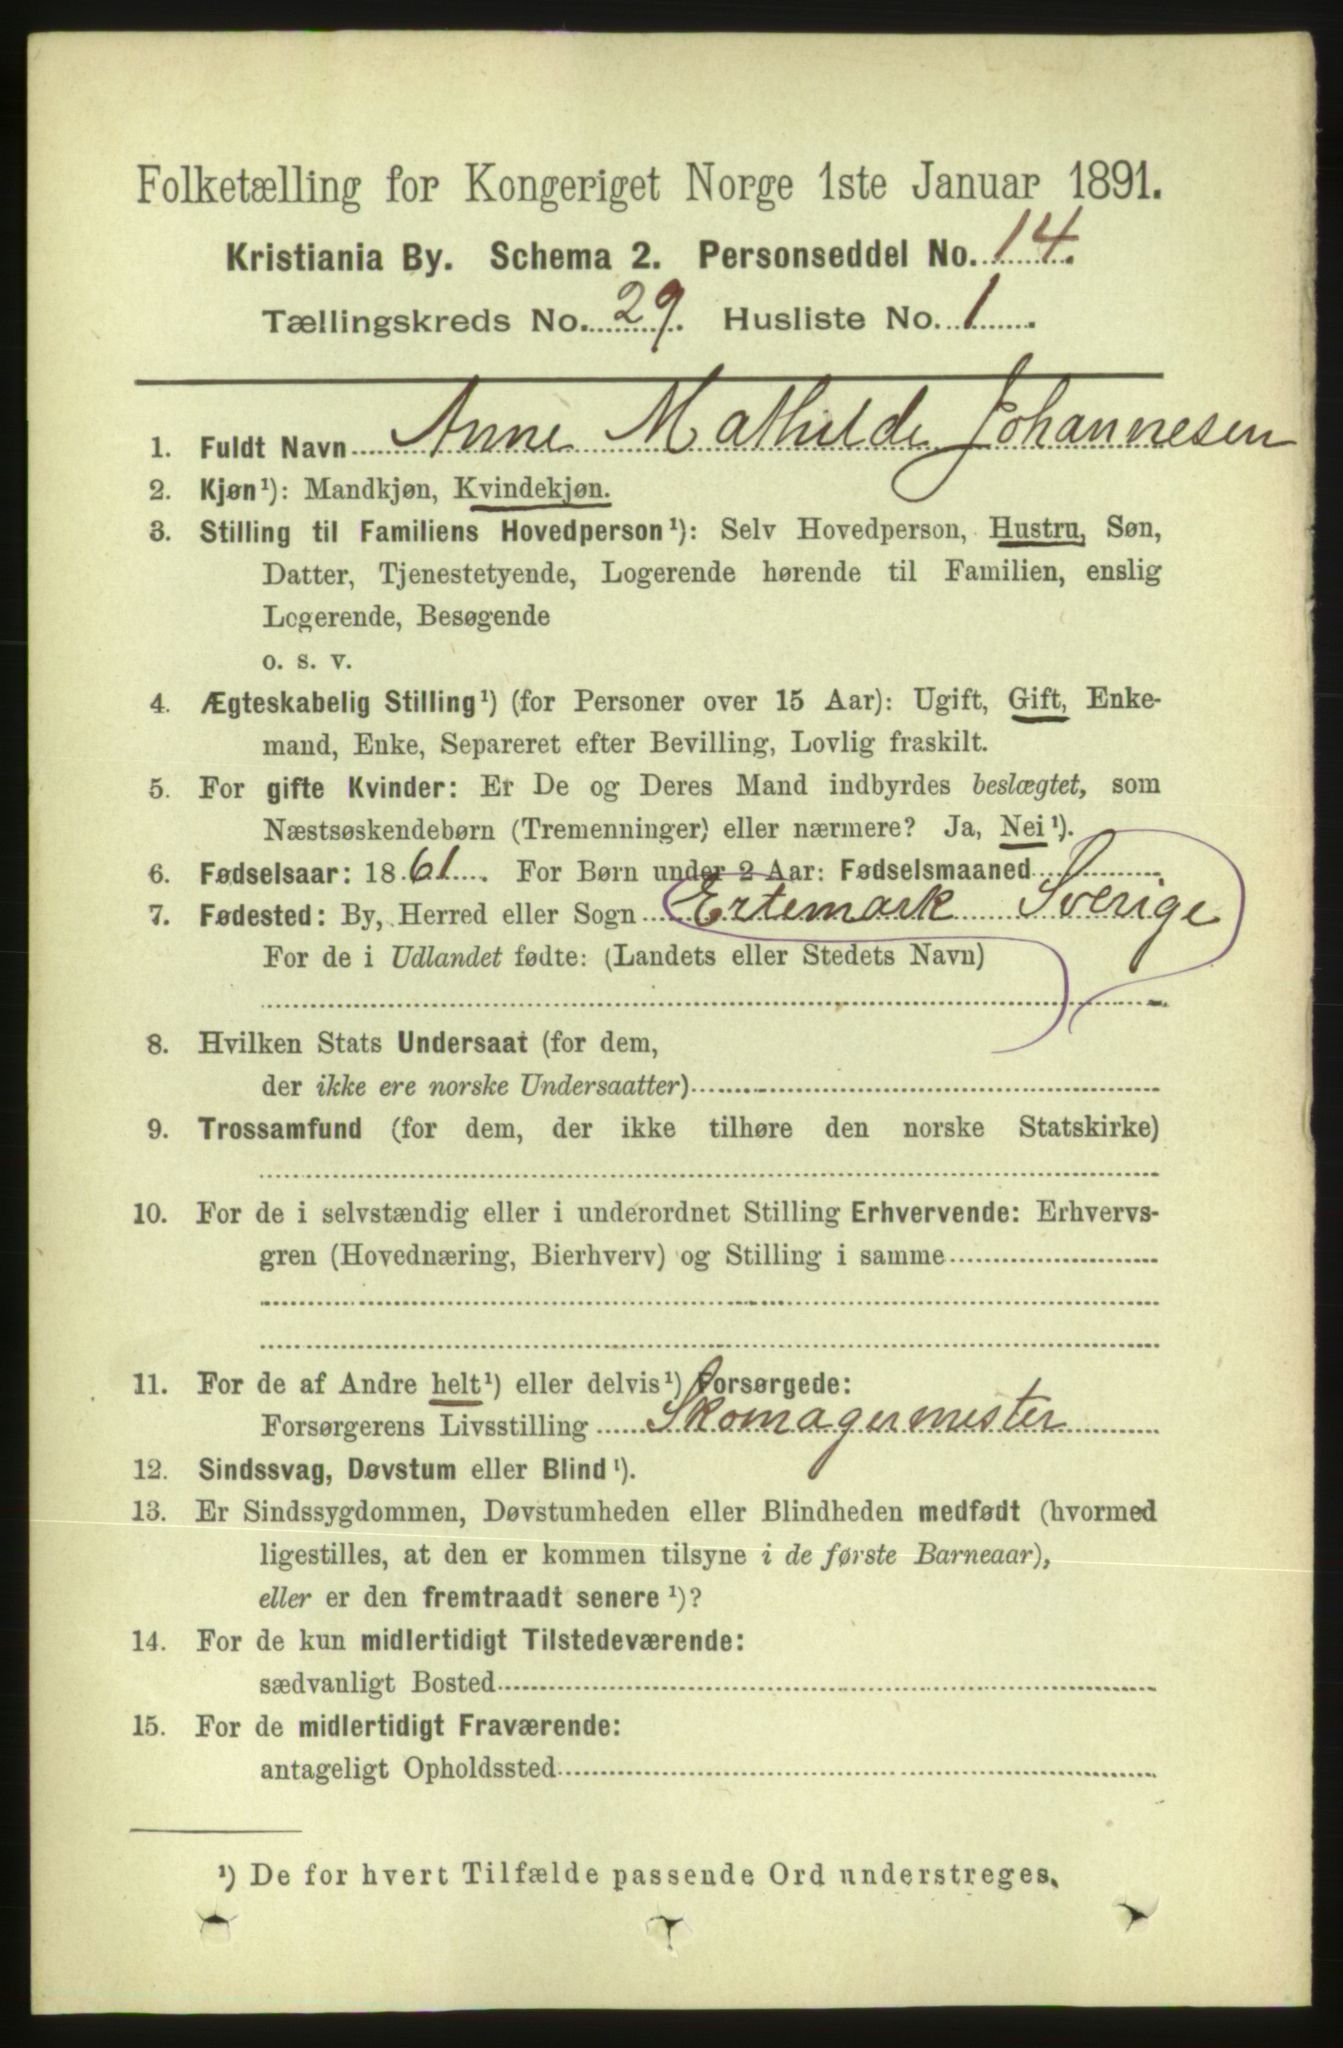 Folketælling for Kongeriget Norge 1ste Januar 1891.
Kristiania By. Schema 2. Personseddel No. 14.
Tællingskreds No. 29. Husliste No. 1.
1. Fuldt Navn Anne Mathilde Johannesen
2. Kjøn¹): Mandkjøn, Kvindekjøn.
3. Stilling til Familiens Hovedperson¹): Selv Hovedperson, Hustru, Søn,
Datter, Tjenestetyende, Logerende hørende til Familien, enslig
Logerende, Besøgende
o. s. v.
4. Ægteskabelig Stilling¹) (for Personer over 15 Aar): Ugift, Gift, Enke-
mand, Enke, Separeret efter Bevilling, Lovlig fraskilt.
5. For gifte Kvinder: Er De og Deres Mand indbyrdes beslægtet, som
Næstsøskendebørn (Tremenninger) eller nærmere? Ja, Nei¹).
6. Fødselsaar: 1861. For Børn under 2 Aar: Fødselsmaaned
7. Fødested: By, Herred eller Sogn Ertemark Sverige
For de i Udlandet fødte: (Landets eller Stedets Navn)
8. Hvilken Stats Undersaat (for dem,
der ikke ere norske Undersaatter)
9. Trossamfund (for dem, der ikke tilhøre den norske Statskirke)
10. For de i selvstændig eller i underordnet Stilling Erhvervende: Erhvervs-
gren (Hovednæring, Bierhverv) og Stilling i samme
11. For de af Andre helt¹) eller delvis¹) Forsørgede:
Forsørgerens Livsstilling Skomagermester
12. Sindssvag, Døvstum eller Blind¹).
13. Er Sindssygdommen, Døvstumheden eller Blindheden medfødt (hvormed
ligestilles, at den er kommen tilsyne i de første Barneaar),
eller er den fremtraadt senere¹)?
14. For de kun midlertidigt Tilstedeværende:
sædvanligt Bosted
15. For de midlertidigt Fraværende:
antageligt Opholdssted
¹) De for hvert Tilfælde passende Ord understreges.